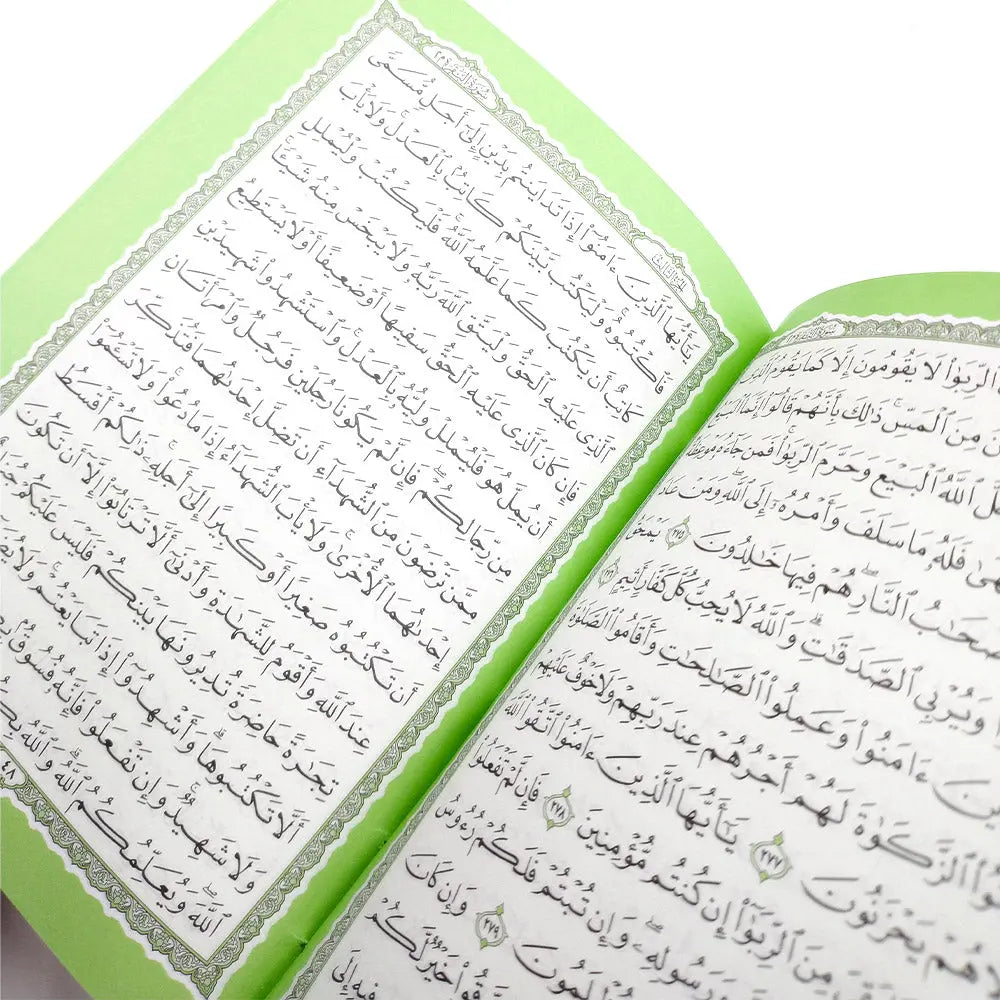 ٱلرِّبَوٰا۟ لَا يَقُومُونَ إِلَّا كَمَا يَقُومُ ٱلَّذِى
مِنَ ٱلْمَسِّ ۚ ذَٰلِكَ بِأَنَّهُمْ قَالُوٓا۟ إِنَّمَا ٱلْبَيْعُ
ٱللَّهُ ٱلْبَيْعَ وَحَرَّمَ ٱلرِّبَوٰا۟ ۚ فَمَن جَآءَهُۥ مَوْعِظَةٌ
فَلَهُۥ مَا سَلَفَ وَأَمْرُهُۥٓ إِلَى ٱللَّهِ ۖ وَمَنْ عَادَ
ٱلنَّارِ ۖ هُمْ فِيهَا خَٰلِدُونَ ٢٧٥ يَمْحَقُ
وَيُرْبِى ٱلصَّدَقَٰتِ ۗ وَٱللَّهُ لَا يُحِبُّ كُلَّ كَفَّارٍ أَثِيمٍ ٢٧٦
ءَامَنُوا۟ وَعَمِلُوا۟ ٱلصَّٰلِحَٰتِ وَأَقَامُوا۟ ٱلصَّلَوٰةَ
ٱلزَّكَوٰةَ لَهُمْ أَجْرُهُمْ عِندَ رَبِّهِمْ وَلَا خَوْفٌ عَلَيْهِمْ
هُمْ يَحْزَنُونَ ٢٧٧ يَٰٓأَيُّهَا ٱلَّذِينَ ءَامَنُوا۟ ٱتَّقُوا۟ ٱللَّهَ
مِنَ ٱلرِّبَوٰٓا۟ إِن كُنتُم مُّؤْمِنِينَ ٢٧٨ فَإِن لَّمْ تَفْعَلُوا۟
وَرَسُولِهِۦ ۖ وَإِن تُبْتُمْ فَلَكُمْ رُءُوسُ
٢٧٩ وَإِن كَانَ
خَيْرٌ لَّكُمْ
فِيهِ إِلَى
سورة البقرة ٢
الجزء الثالث ٣
يَٰٓأَيُّهَا ٱلَّذِينَ ءَامَنُوٓا۟ إِذَا تَدَايَنتُم بِدَيْنٍ إِلَىٰٓ أَجَلٍ مُّسَمًّى
فَٱكْتُبُوهُ ۚ وَلْيَكْتُب بَّيْنَكُمْ كَاتِبٌۢ بِٱلْعَدْلِ ۚ وَلَا يَأْبَ
كَاتِبٌ أَن يَكْتُبَ كَمَا عَلَّمَهُ ٱللَّهُ ۚ فَلْيَكْتُبْ وَلْيُمْلِلِ
ٱلَّذِى عَلَيْهِ ٱلْحَقُّ وَلْيَتَّقِ ٱللَّهَ رَبَّهُۥ وَلَا يَبْخَسْ مِنْهُ شَيْـًٔا ۚ
فَإِن كَانَ ٱلَّذِى عَلَيْهِ ٱلْحَقُّ سَفِيهًا أَوْ ضَعِيفًا أَوْ لَا يَسْتَطِيعُ
أَن يُمِلَّ هُوَ فَلْيُمْلِلْ وَلِيُّهُۥ بِٱلْعَدْلِ ۚ وَٱسْتَشْهِدُوا۟ شَهِيدَيْنِ
مِن رِّجَالِكُمْ ۖ فَإِن لَّمْ يَكُونَا رَجُلَيْنِ فَرَجُلٌ وَٱمْرَأَتَانِ
مِمَّن تَرْضَوْنَ مِنَ ٱلشُّهَدَآءِ أَن تَضِلَّ إِحْدَىٰهُمَا فَتُذَكِّرَ
إِحْدَىٰهُمَا ٱلْأُخْرَىٰ ۚ وَلَا يَأْبَ ٱلشُّهَدَآءُ إِذَا مَا دُعُوا۟ ۚ وَلَا تَسْـَٔمُوٓا۟
أَن تَكْتُبُوهُ صَغِيرًا أَوْ كَبِيرًا إِلَىٰٓ أَجَلِهِۦ ۚ ذَٰلِكُمْ أَقْسَطُ
عِندَ ٱللَّهِ وَأَقْوَمُ لِلشَّهَٰدَةِ وَأَدْنَىٰٓ أَلَّا تَرْتَابُوٓا۟ ۖ إِلَّآ أَن تَكُونَ
تِجَٰرَةً حَاضِرَةً تُدِيرُونَهَا بَيْنَكُمْ فَلَيْسَ عَلَيْكُمْ
أَلَّا تَكْتُبُوهَا ۗ وَأَشْهِدُوٓا۟ إِذَا تَبَايَعْتُمْ ۚ وَلَا
وَلَا شَهِيدٌ ۚ وَإِن تَفْعَلُوا۟ فَإِنَّهُۥ فُسُوقٌۢ
ٱللَّهَ ۖ وَيُعَلِّمُكُمُ ٱللَّهُ ۗ وَٱللَّهُ
٤٨